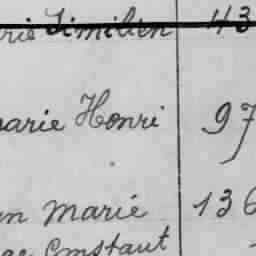 rie Similien 43
arie Henri 97
en Marie 136
ge Constant